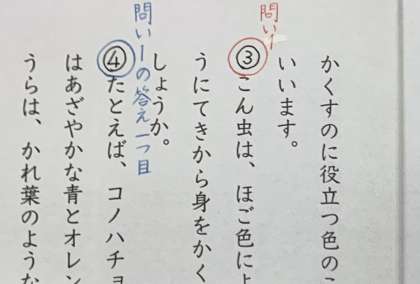 かくすのに役立つ色のこ
いいます。
問い一
③こん虫は、ほご色によ
うにてきから身をかく
しょうか。
問い一の答え一つ目
④たとえば、コノハチョ
はあざやかな青とオレン
うらは、かれ葉のような